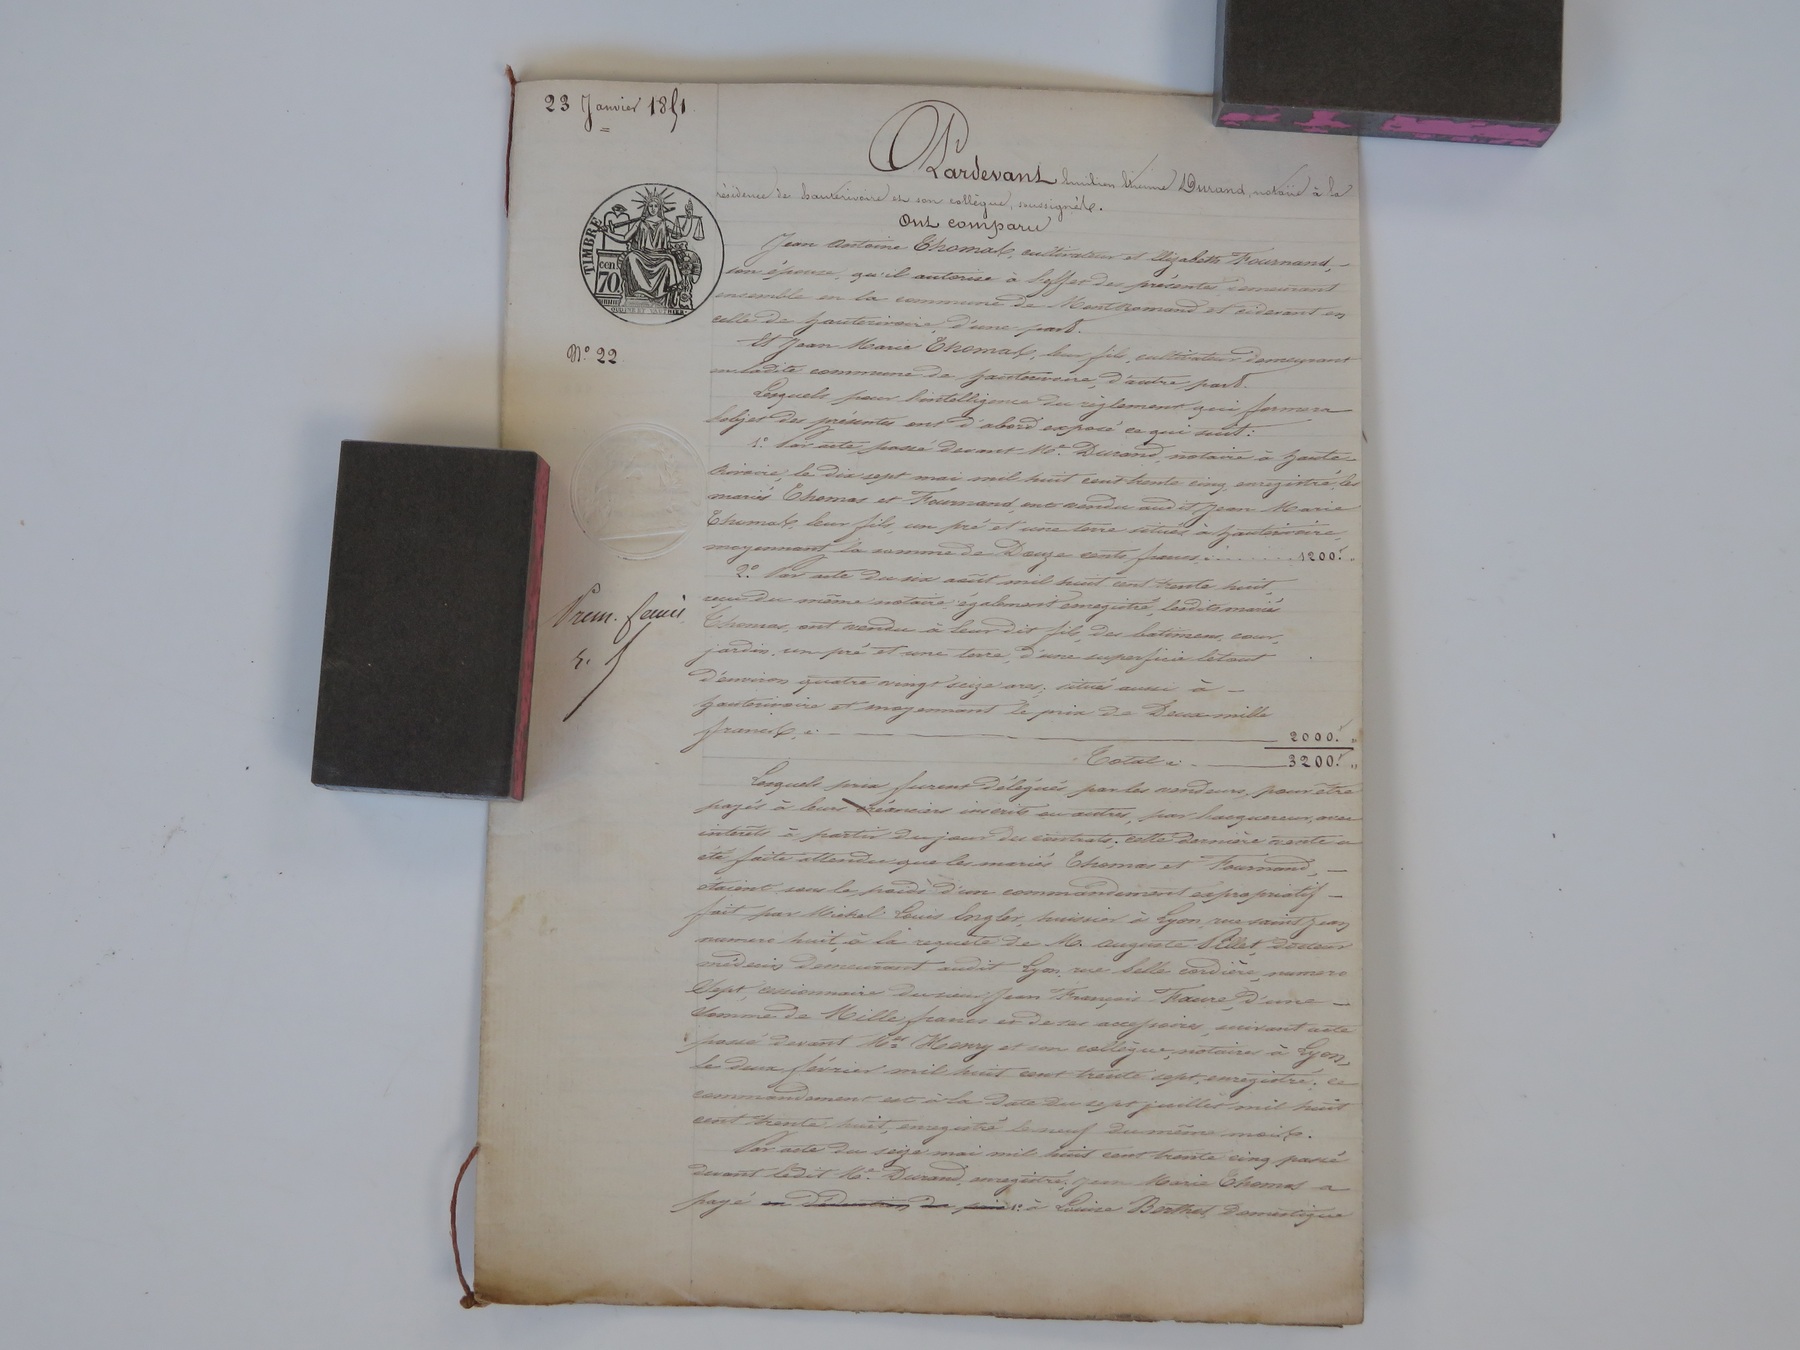 23 Janvier 1851
TIMBRE
cen
70
N.º 22
Prem. feuille
Pardevant Etienne Durand, notaire à la
résidence de hauterivoire et son collègue, soussignés.
Ont comparu
Jean Antoine Thomas, cultivateur et Elizabeth Fournand,
son épouse, qu'il autorise à l'effet des présentes demeurant
ensemble en la commune de Montromand et résidant en
celle de hauterivoire, d'une part.
Et Jean Marie Thomas, leur fils, cultivateur demeurant
en ladite commune de hauterivoire, d'autre part.
Lesquels pour l'intelligence du règlement qui formera
l'objet des présentes ont d'abord exposé ce qui suit:
1.º Par acte passé devant M.e Durand, notaire à haute-
rivoire, le dix sept mai mil huit cent trente cinq, enregistré, les
mariés Thomas et Fournand, ont vendu audit Jean Marie
Thomas, leur fils, un pré et une terre situés à hauterivoire,
moyennant la somme de Douze cents francs 1200.f
2.º Par acte du six août mil huit cent trente huit,
reçu du même notaire, également enregistré, lesdits mariés
Thomas, ont vendu à leur dit fils, des bâtimens, cour,
jardin, un pré et une terre, d'une superficie le tout
d'environ quatre vingt seize ares, situés aussi à
hauterivoire et moyennant le prix de Deux mille
francs, 2000.f
Total 3200.f
Lesquels prix furent délégués par les vendeurs, pour être
payés à leurs créanciers inscrits ou autres, par l'acquéreur, avec
intérêts à partir du jour des contrats, cette dernière vente a
été faite attendu que les mariés Thomas et Fournand,
étaient sous le poids d'un commandement expropriatif
fait par Michel Louis Engler, huissier à Lyon, rue saint Jean
numero huit, à la requête de M. Auguste Pellet, docteur
médecin demeurant audit Lyon, rue belle cordière, numero
Sept, cessionnaire du sieur Jean François Faure, d'une
Somme de Mille francs et de ses accessoires, suivant acte
passé devant M.es Henry et son collègue, notaires à Lyon,
le deux février mil huit cent trente sept, enregistré; ce
commandement est à la date du sept juillet mil huit
cent trente huit, enregistré le neuf du même mois.
Par acte du seize mai mil huit cent trente cinq passé
devant ledit M.e Durand, enregistré, Jean Marie Thomas a
payé en déduction du prix 1.º à Louise Berthet, Domestique